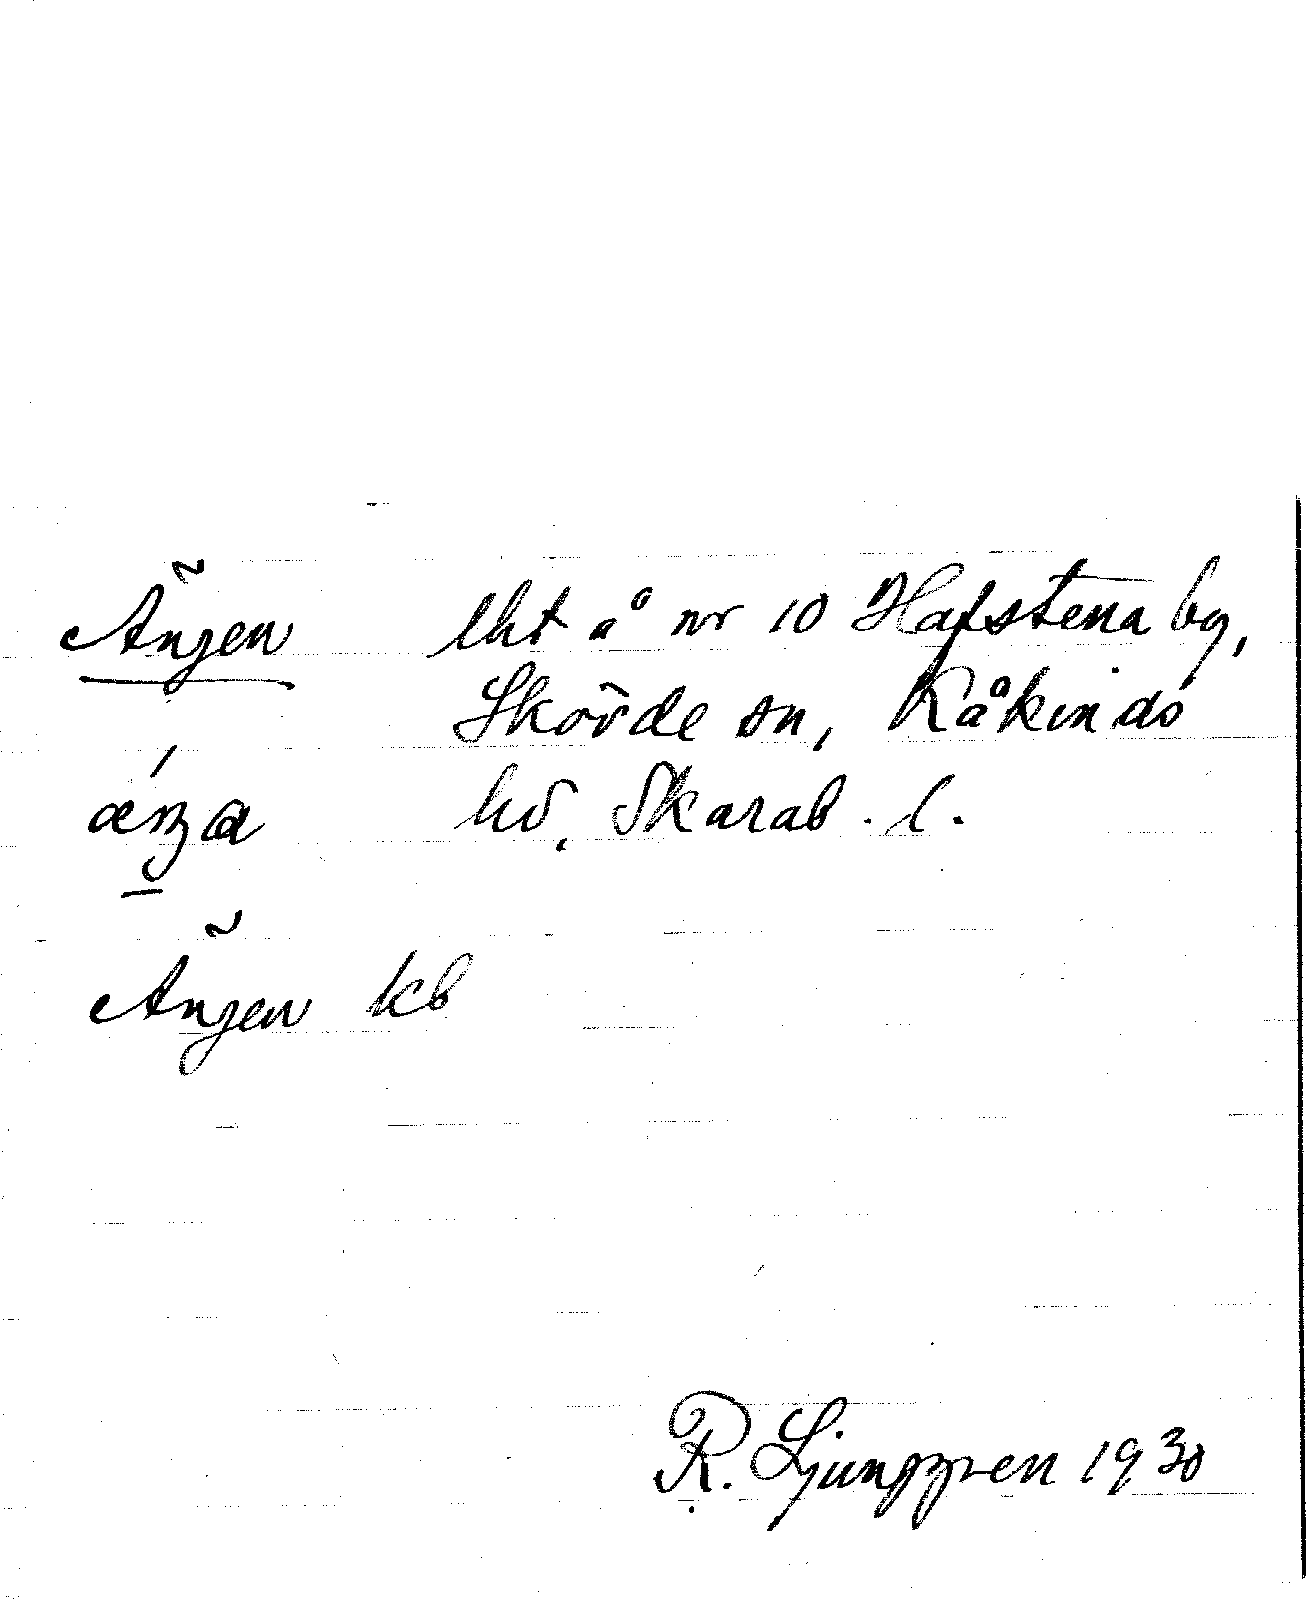 Ängen lht å nr 10 Hafstena by,
Skövde sn, Kåkinds
hd, Skarab. l.
Ängen kb
R. Ljunggren 1930